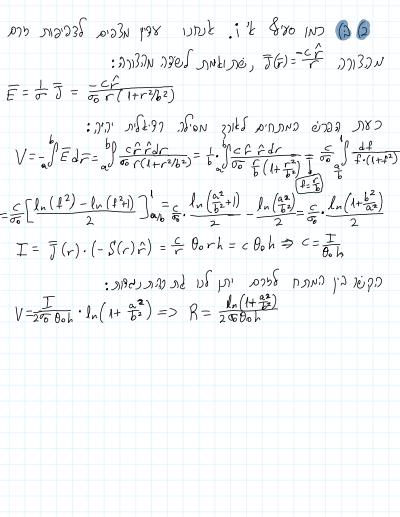 2) כמו סעיף א' i. אנחנו עדיין מצפים לצפיפות זרם
מהצורה J̄(r) = -c r̂ / r , שתואמת לשדה מהצורה:
Ē = 1/σ J̄ = -c r̂ / (σ₀ r (1+r²/b²))
כעת הפרש המתחים לאורך מסילה רדיאלית יהיה:
V = -∫ₐᵇ Ē dr̄ = ∫ₐᵇ c r̂ r̂ dr / (σ₀ r (1+r²/b²)) = 1/b · ∫ₐᵇ c r̂ r̂ dr / (σ₀ r/b (1+r²/b²)) = c/σ₀ ∫_{a/b}^{1} dt / (t·(1+t²))
t = r/b
= c/σ₀ [ (ln(t²) - ln(t²+1)) / 2 ]_{a/b}^{1} = c/σ₀ · ln(a²/b²+1)/2 - ln(a²/b²)/2 = c/σ₀ · ln(1+b²/a²)/2
I = J̄(r)·(-S(r) r̂) = c/r θ₀ r h = c θ₀ h ⇒ c = I/(θ₀ h)
הקשר בין המתח לזרם יתן לנו את ההתנגדות:
V = I/(2σ₀ θ₀ h) · ln(1+ a²/b²) => R = ln(1+ a²/b²) / (2σ₀ θ₀ h)